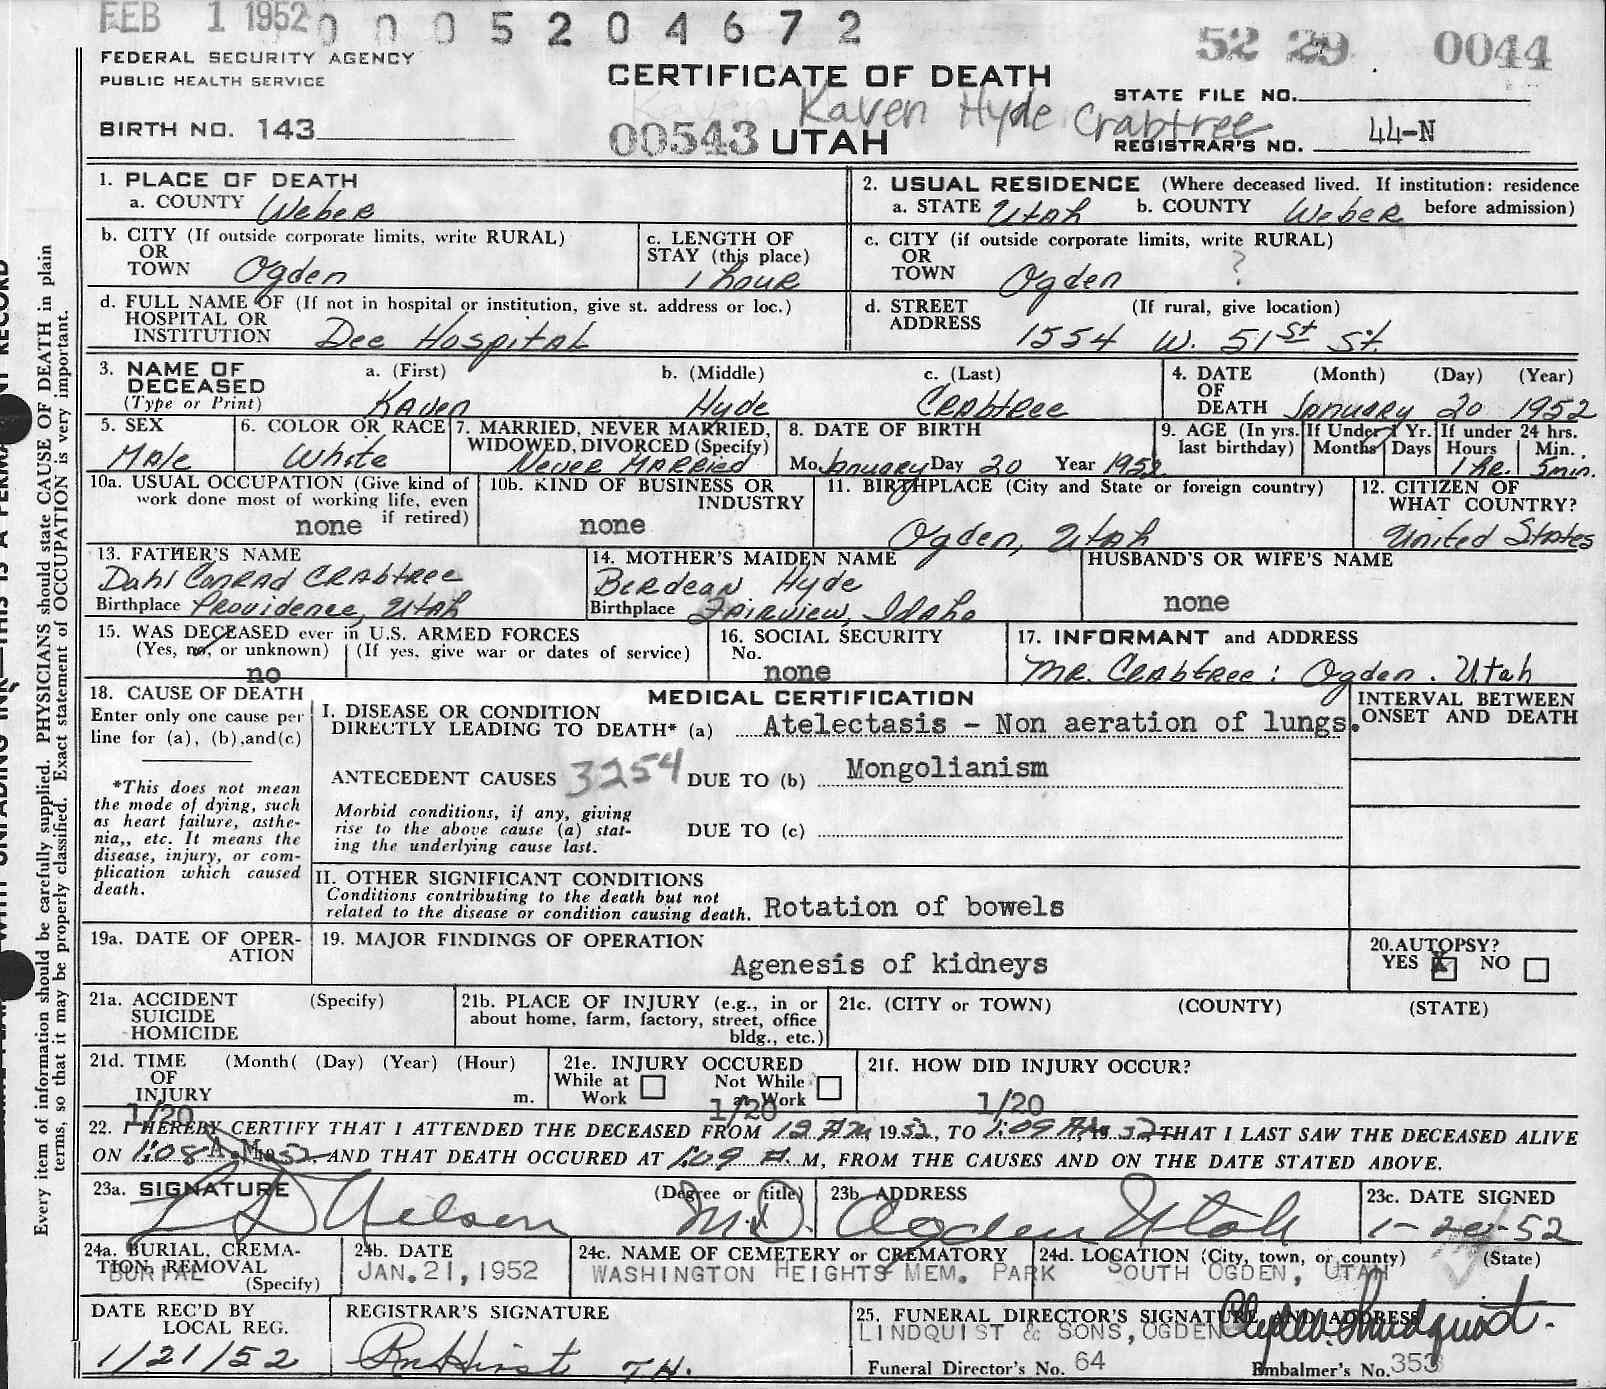 FEB 1 1952
0 0 0 5 2 0 4 6 7 2
52 29 0044
FEDERAL SECURITY AGENCY
PUBLIC HEALTH SERVICE
CERTIFICATE OF DEATH
STATE FILE NO.
Kaven Hyde Crabtree
BIRTH NO. 143
00543 UTAH
REGISTRAR'S NO. 44-N
1. PLACE OF DEATH
a. COUNTY Weber
2. USUAL RESIDENCE (Where deceased lived. If institution: residence
a. STATE Utah b. COUNTY Weber before admission)
b. CITY (If outside corporate limits, write RURAL)
OR
TOWN Ogden
c. LENGTH OF
STAY (this place)
1 hour
c. CITY (if outside corporate limits, write RURAL)
OR
TOWN Ogden ?
d. FULL NAME OF (If not in hospital or institution, give st. address or loc.)
HOSPITAL OR
INSTITUTION Dee Hospital
d. STREET (If rural, give location)
ADDRESS 1554 W. 51st St.
3. NAME OF
DECEASED
(Type or Print)
a. (First) b. (Middle) c. (Last)
Kaven Hyde Crabtree
4. DATE (Month) (Day) (Year)
OF
DEATH January 20 1952
5. SEX
Male
6. COLOR OR RACE
White
7. MARRIED, NEVER MARRIED,
WIDOWED, DIVORCED (Specify)
Never Married
8. DATE OF BIRTH
Mo January Day 20 Year 1952
9. AGE (In yrs.
last birthday)
If Under 1 Yr.
Months Days
If under 24 hrs.
Hours Min.
1 hr. 5 min.
10a. USUAL OCCUPATION (Give kind of
work done most of working life, even
if retired)
none
10b. KIND OF BUSINESS OR
INDUSTRY
none
11. BIRTHPLACE (City and State or foreign country)
Ogden, Utah
12. CITIZEN OF
WHAT COUNTRY?
United States
13. FATHER'S NAME
Dahl Conrad Crabtree
Birthplace Providence, Utah
14. MOTHER'S MAIDEN NAME
Berdean Hyde
Birthplace Fairview, Idaho
HUSBAND'S OR WIFE'S NAME
none
15. WAS DECEASED ever in U.S. ARMED FORCES
(Yes, no, or unknown) (If yes, give war or dates of service)
no
16. SOCIAL SECURITY
No.
none
17. INFORMANT and ADDRESS
Mr. Crabtree: Ogden. Utah
18. CAUSE OF DEATH
Enter only one cause per
line for (a), (b), and (c)
*This does not mean
the mode of dying, such
as heart failure, asthe-
nia,, etc. It means the
disease, injury, or com-
plication which caused
death.
MEDICAL CERTIFICATION
INTERVAL BETWEEN
ONSET AND DEATH
I. DISEASE OR CONDITION
DIRECTLY LEADING TO DEATH* (a) Atelectasis - Non aeration of lungs.
ANTECEDENT CAUSES 3254 DUE TO (b) Mongolianism
Morbid conditions, if any, giving
rise to the above cause (a) stat-
ing the underlying cause last.
DUE TO (c)
II. OTHER SIGNIFICANT CONDITIONS
Conditions contributing to the death but not
related to the disease or condition causing death. Rotation of bowels
19a. DATE OF OPER-
ATION
19. MAJOR FINDINGS OF OPERATION
Agenesis of kidneys
20. AUTOPSY?
YES X NO
21a. ACCIDENT (Specify)
SUICIDE
HOMICIDE
21b. PLACE OF INJURY (e.g., in or
about home, farm, factory, street, office
bldg., etc.)
21c. (CITY or TOWN) (COUNTY) (STATE)
21d. TIME (Month( (Day) (Year) (Hour)
OF
INJURY m.
21e. INJURY OCCURED
While at Work Not While at Work
21f. HOW DID INJURY OCCUR?
1/20 1/20 1/20
22. I HEREBY CERTIFY THAT I ATTENDED THE DECEASED FROM 12 AM 1952, TO 1:09 AM 1952 THAT I LAST SAW THE DECEASED ALIVE
ON 1:08 A.M. 1952, AND THAT DEATH OCCURED AT 1:09 A. M, FROM THE CAUSES AND ON THE DATE STATED ABOVE.
23a. SIGNATURE (Degree or title)
Nelson M.D.
23b. ADDRESS
Ogden Utah
23c. DATE SIGNED
1-20-52
24a. BURIAL, CREMA-
TION, REMOVAL
(Specify)
BURIAL
24b. DATE
JAN. 21, 1952
24c. NAME OF CEMETERY or CREMATORY
WASHINGTON HEIGHTS MEM. PARK
24d. LOCATION (City, town, or county) (State)
SOUTH OGDEN, UTAH
DATE REC'D BY
LOCAL REG.
1/21/52
REGISTRAR'S SIGNATURE
T.H.
25. FUNERAL DIRECTOR'S SIGNATURE AND ADDRESS
LINDQUIST & SONS, OGDEN
Funeral Director's No. 64 Embalmer's No. 353
Every item of information should be carefully supplied. PHYSICIANS should state CAUSE OF DEATH in plain
terms, so that it may be properly classified. Exact statement of OCCUPATION is very important.